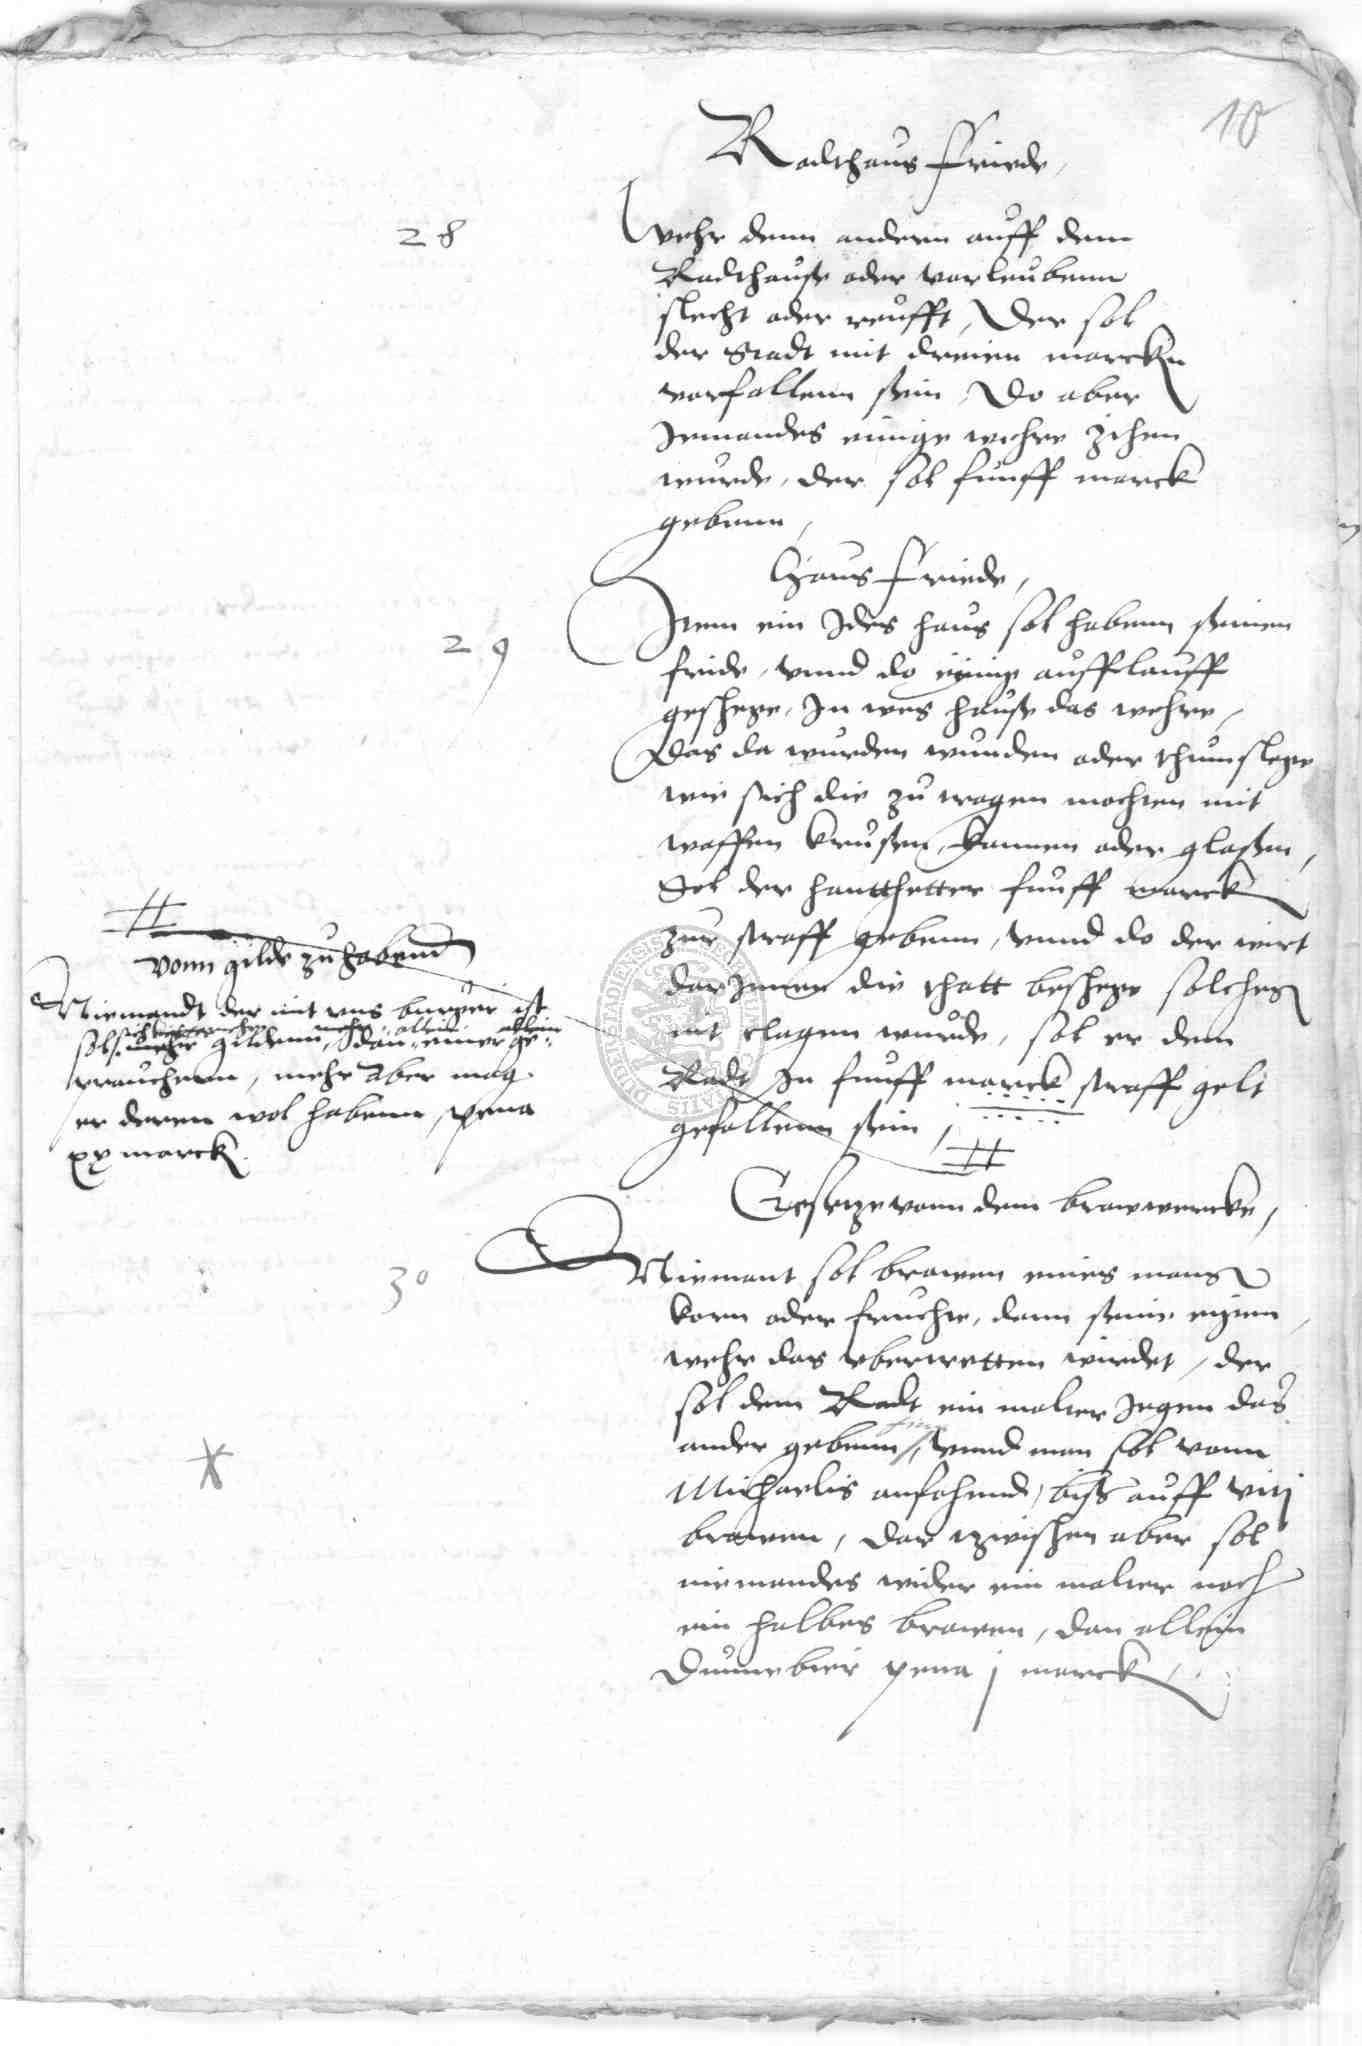 10
Radthaus Friede,
28
Wehr denn andern auff dem
Radthauße oder vorleubenn
slecht oder reufft, Der sol
der Stadt mit dreien marckn
vorfallenn sein, Do aber
Jemandes einige wehre zihen
wurde, der sol funff marck
gebenn,
Haus Friede,
29
Item ein Jdes haus sol habenn seinen
fride, vnnd do einige aufflauff
geschege, Jn wes hauße das wehre,
Das da wurden wunden oder thumslege
wie sich die zu tragen mochten mit
waffen kreußen, kannen oder glaßen,
Sol der hantthetter funff marck
zur straff gebenn, vnnd do der wirt
dar Jnnen die thatt beschege solches
nit clagen wurde, sol er dem
Radt Jn funff marck straff gelt
gefallenn sein,
vonn gilde zu habenn
Niemandt der mit vns burger ist
sol gildenn, dan einer ge
brauchenn, mehr aber mag
er deren wol habenn, pena
xv marck
Gesetze vonn dem brawwercke,
30
Niemant sol brawen eines mans
korn oder fruchte, dann sein eigenn,
wehr das vbertretten wirdet, der
sol dem Radt ein malter Jegen das
ander gebenn, vnnd man sol vonn
Michaelis anfahend, biß auff viti
brawen, dar zwischen aber sol
niemandes wider ein malter noch
ein halbes brawen, dan allein
Dunnebier pena j marck,